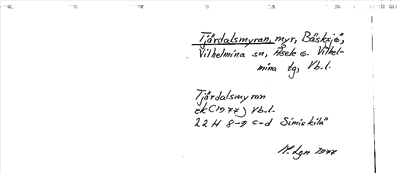 Tjärdalsmyran, myr, Bäsksjö,
Vilhelmina sn, Åsele o. Vilhel-
mina tg, Vb.l.
Tjärdalsmyran
ek (1977) Vb.l.
22 H 8-9 c-d Simiskilä
M. Lgn 1977